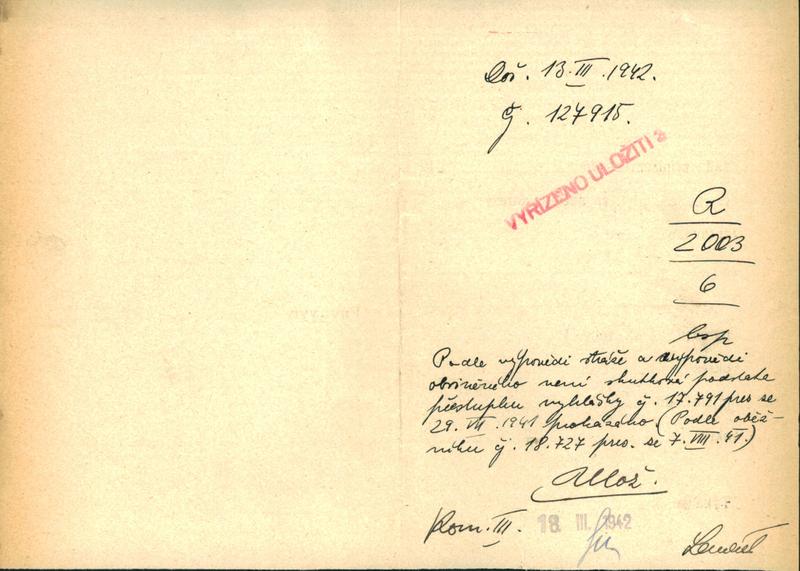 Doš. 13.III.1942.
Čj. 127915.
VYŘÍZENO ULOŽITI 2
R
2003
6
bsp
Podle výpovědi stráže a výpovědi
obviněného není skutková podstata
přestupku vyhlášky čj. 17.791 pres se
29. VII. 1941 prokázána (Podle oběž-
níku čj. 18.727 pres. se 7. VIII. 41.)
Kom. III. 18 III. 1942